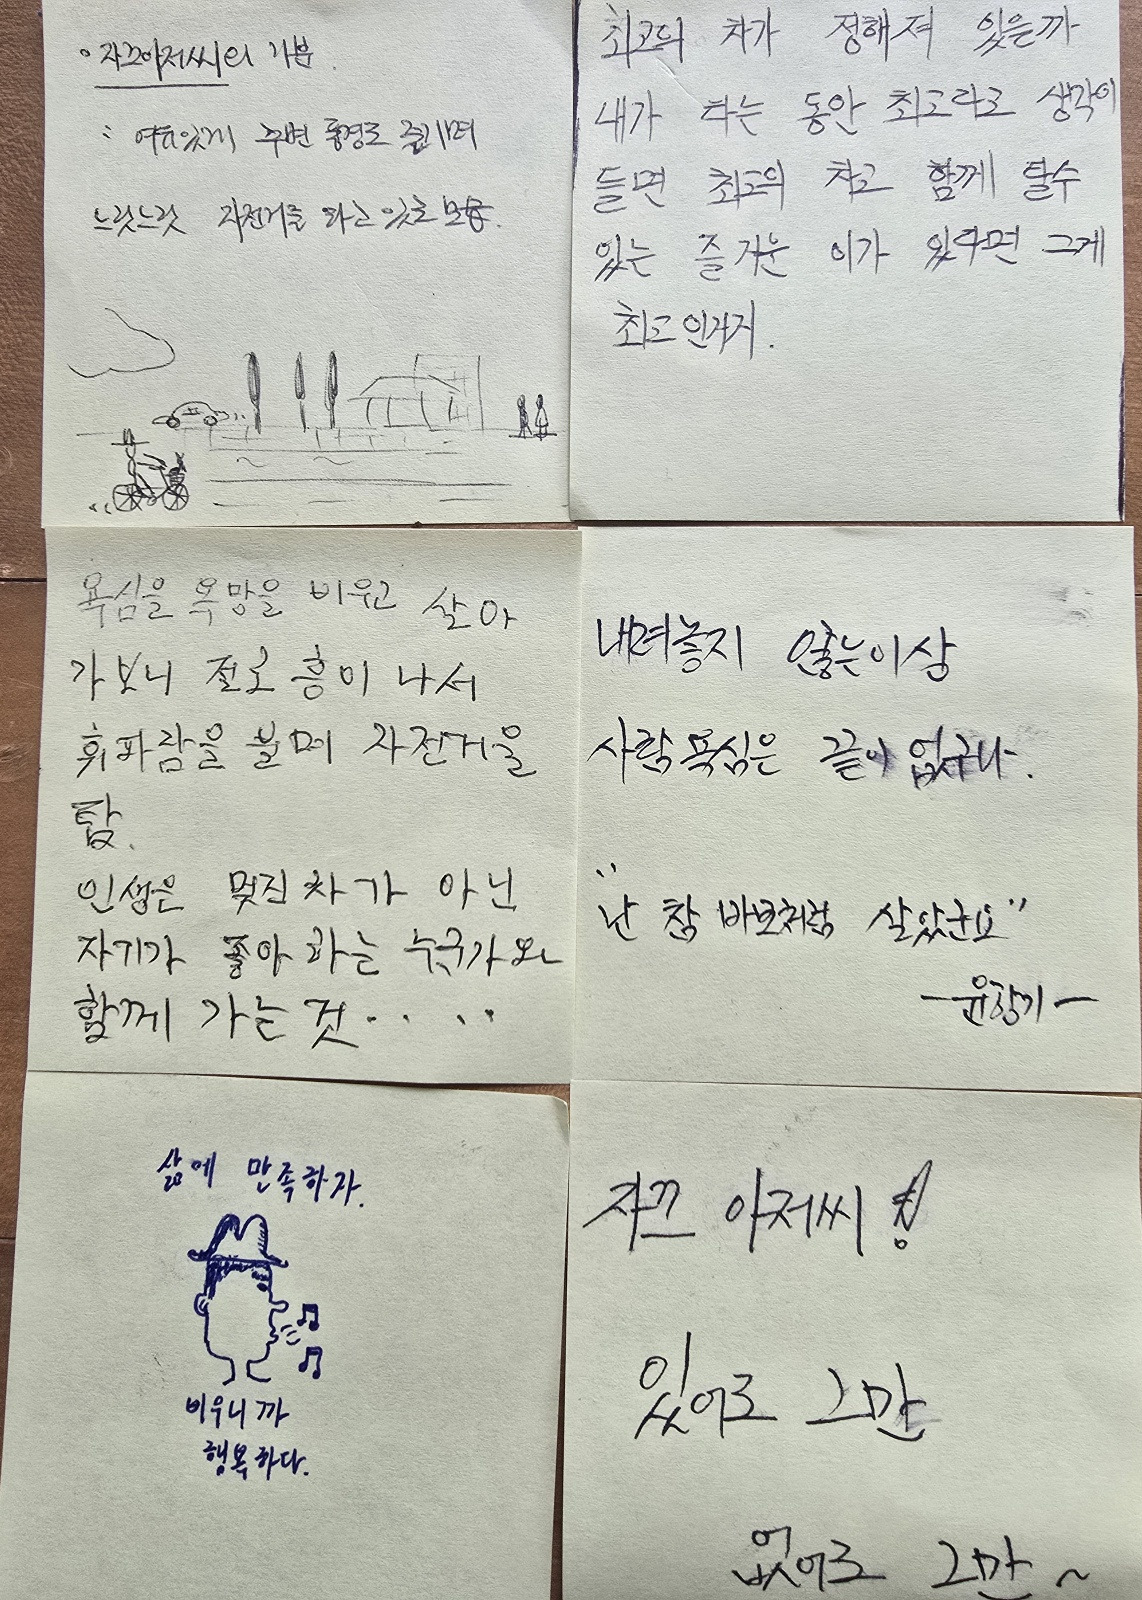 • 자끄아저씨의 기분.
: 여유있게 주변 풍경도 즐기며
느릿느릿 자전거를 타고 있는 모습.
최고의 차가 정해져 있을까
내가 타는 동안 최고라고 생각이
들면 최고의 차고 함께 탈수
있는 즐거운 이가 있다면 그게
최고인거지.
욕심을 욕망을 비우고 살아
가보니 절로 흥이 나서
휘파람을 불며 자전거을
탑.
인생은 멋진차가 아닌
자기가 좋아 하는 누구가와
함께 가는 것‥‥
내려놓지 않는이상
사람욕심은 끝이 없구나.
"난 참 바보처럼 살았군요"
- 윤항기 -
삶에 만족하자.
비우니까
행복하다.
자끄 아저씨
있어도 그만
없어도 그만~